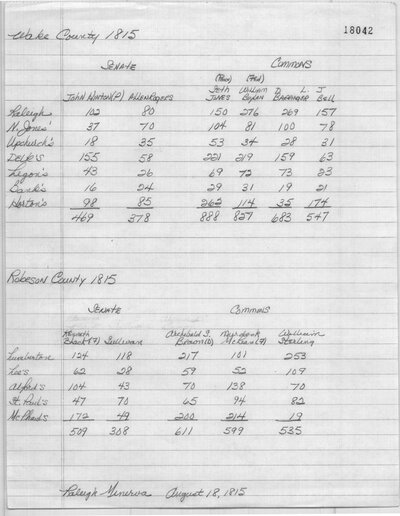 18042
Wake County 1815
SENATE COMMONS
(Fed)
JOHN HINTON(P) ALLEN ROGERS SETH JONES William Boylan D L. BARRINGER J Bell
Raleigh 102 80 150 276 269 157
N. Jones' 37 70 104 81 100 78
Upchurch's 18 35 53 34 28 31
DELKE'S 155 58 221 219 159 63
Ligon's 43 26 69 72 73 23
Bank's 16 24 29 31 19 21
Horton's 98 85 262 114 35 174
469 378 888 827 683 547
Robeson County 1815
SENATE COMMONS
Kenneth Black(F) Sullivan Archibald S. Brown McKean(F) William Sterling
Lumberton 124 118 217 101 253
Lee's 62 28 59 52 109
Alford's 104 43 70 138 70
St. Paul's 47 70 65 94 82
McPhaul's 172 49 200 214 19
509 308 611 599 535
Raleigh Minerva August 18, 1815